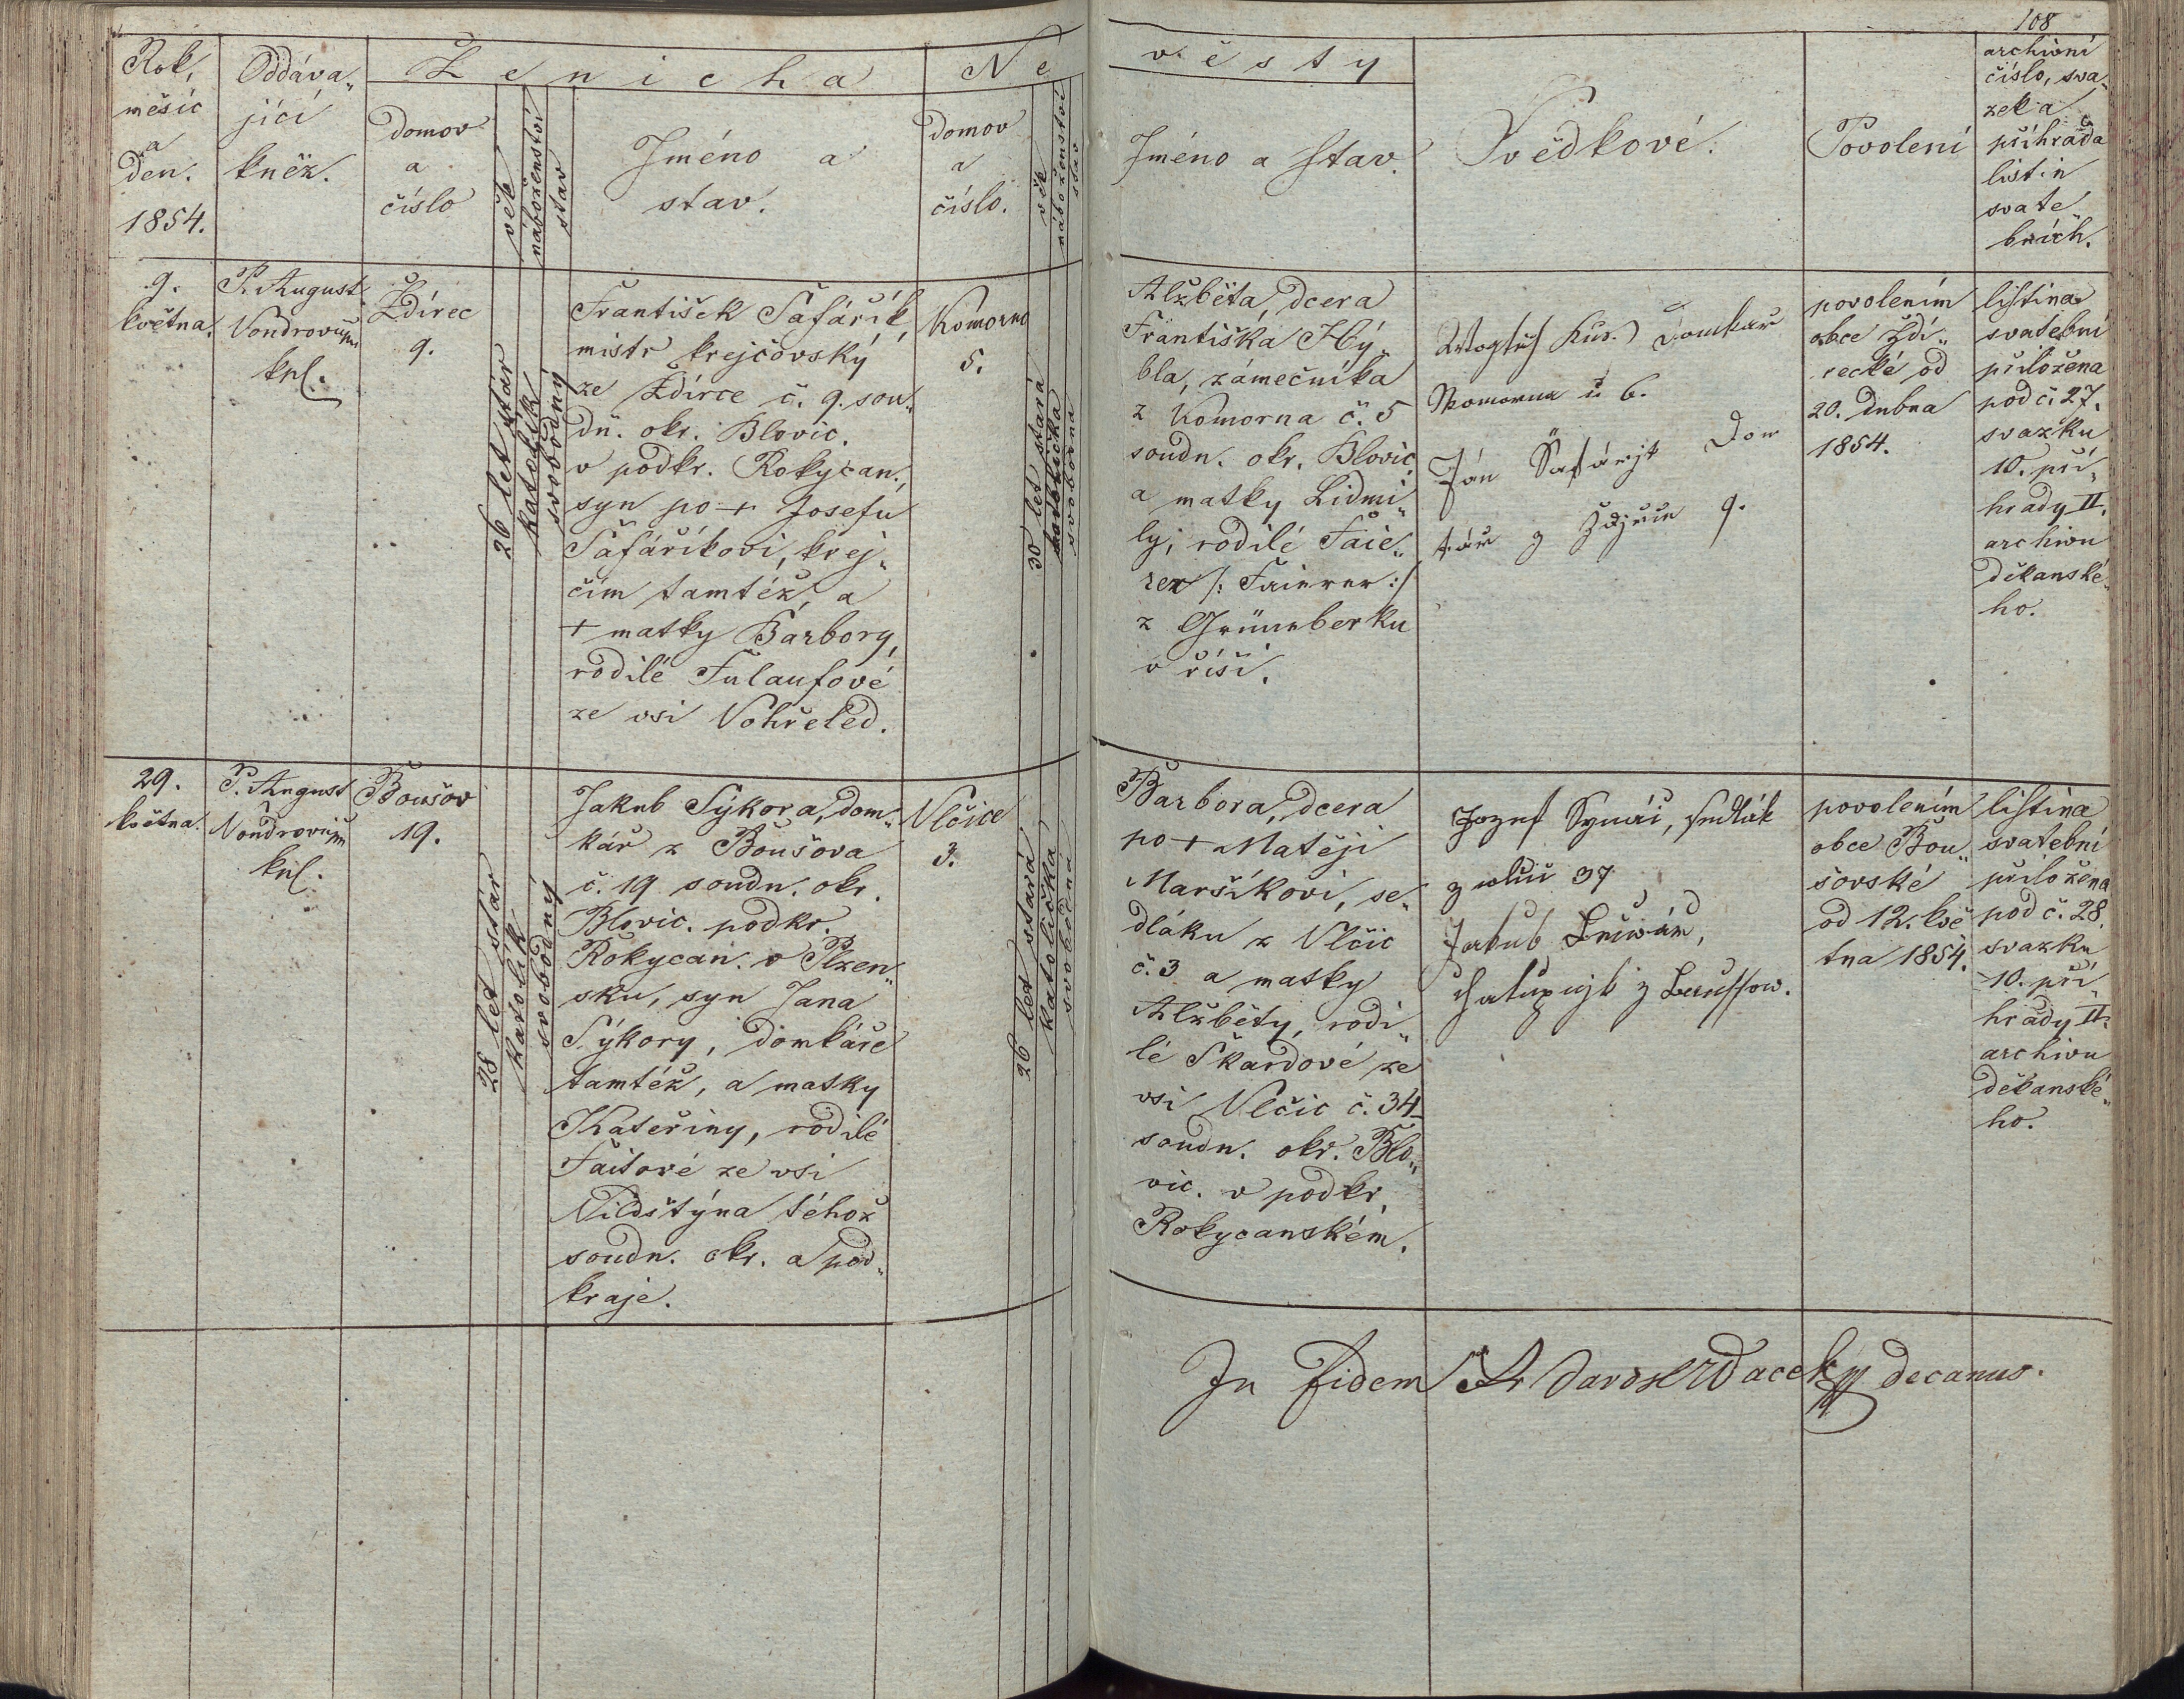 108
Rok,
měsíc
a
den.
1854.
Oddáva„
jící
kněz.
Ženicha
domov
a
číslo
věk
náboženství
stav
Jméno a
stav.
Ne
domov
a
číslo.
věk
náboženství
stav
věsty
Jméno a stav.
Svědkové.
Povolení
archivní
číslo, sva„
zek a
příhrada
listin
svate
bních.
9.
května.
P. August
Vondrovic
kpl.
Ždírec
9.
26 let stár
katolík
svobodný
František Šafářík,
mistr krejčovský
ze Ždírce č. 9. sou„
dn. okr. Blovic.
v podkr. Rokycan.,
syn po + Josefu
Šafáříkovi, krej„
čím tamtéž, a
+ matky Barbory,
rodilé Fulaufové
ze vsi Vohřeled.
Komorno
5.
30 let stará
katolička
svobodna
Alžběta, dcera
Františka Hý„
bla, zámečníka
z Komorna č. 5
soudn. okr. Blovic.
a matky Lidmi„
ly, rodilé Faie„
rer /: Faierer :/
z Grünnberku
v říši.
Domkař
Komorna č 6.
Ján Šafárjk Dom
kář z 9.
povolením
obce Ždí„
recké od
20. dubna
1854.
listina
svatební
přiložena
pod č. 27.
svazku
10. pří„
hrady II.
archivu
děkanské„
ho.
29.
května.
P. August
Vondrovic
kpl.
Boušov
19.
28 let stár
katolík
svobodný
Jakub Sýkora, dom„
kář z Boušova
č. 19 soudn. okr.
Blovic. podkr.
Rokycan. v Plzen„
sku, syn Jana
Sýkory, domkáře
tamtéž, a matky
Kateřiny, rodilé
Faitové ze vsi
Vildštýna téhož
soudn. okr. a pod„
kraje.
Vlčice
3.
26 let stará
katolička
svobodna
Barbora, dcera
po + Matěji
Maršíkovi, se„
dláku z Vlčic
č. 3 a matky
Alžběty, rodi„
lé Škardové ze
vsi Vlčic č. 34
soudn. okr. Blo„
vic. v podkr.
Rokycanském.
Jozef sedlák
z 37
Jakub
chalupnjk z Baussow.
povolením
obce Bou„
šovské
od 12. kvě
tna 1854.
listina
svatební
přiložena
pod č. 28.
svazku
10. pří„
hrady II.
archivu
děkanské„
ho.
In fidem decanus.